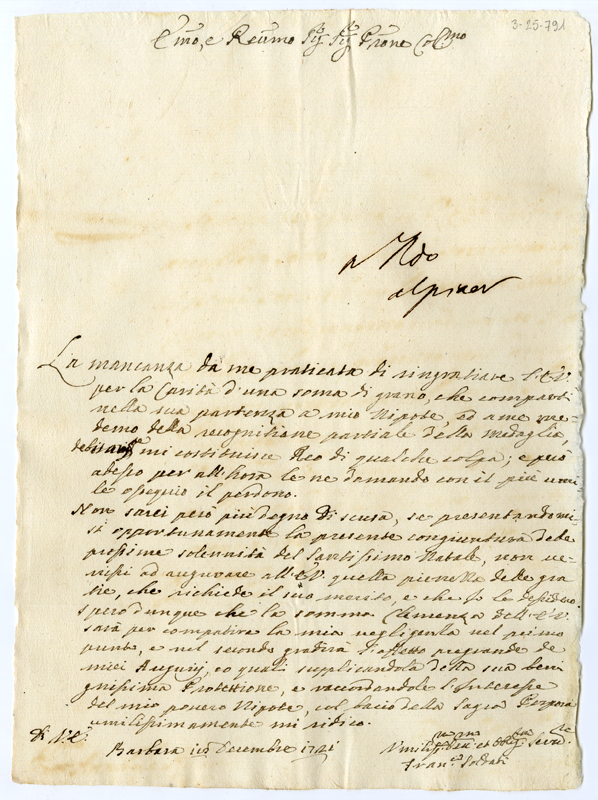 3-25-791
Emo, e Reumo Sig. Sig. Prone Colmo
La mancanza da me praticata di ringratiare l'E.V.
per la Carità d'una soma di grano, che compartì
nella sua partenza a mio Nipote, ed a me me-
demo della recognitione partiale della Medaglia,
mi costituisce Reo di qualche colpa; e però
adesso per all'hora le ne domando con il più umi-
le ossequio il perdono.
Non sarei però più degno di scusa, se presentandomi-
si opportunamente la presente congiuntura delle
prossime solennità del Santissimo Natale, non ve-
nissi ad augurare all'E.V. quella pienezza delle gra-
tie, che richiede il suo merito, e che Io le desidero.
Spero dunque che la somma Clemenza dell'E.V.
sarà per compatire la mia negligenza nel primo
punto, e nel secondo gradirà l'affetto de
miei Augurij, co quali supplicandola della sua beni
gnissima Protettione, e raccordandole l'Interesse
del mio povero Nipote, col bacio della Sagra Porpora
umilissimamente mi ratico.
Di V.E.
Barbara Decembre 1721
Franco Soldati